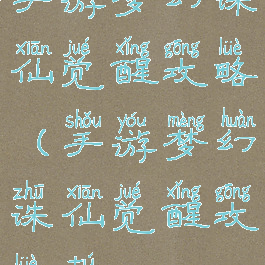 手游梦幻诛
xiān jué xǐng gōng lüè
仙觉醒攻略
shǒu yóu mèng huàn
（手游梦幻
zhū xiān jué xǐng gōng
诛仙觉醒攻
lüè tú